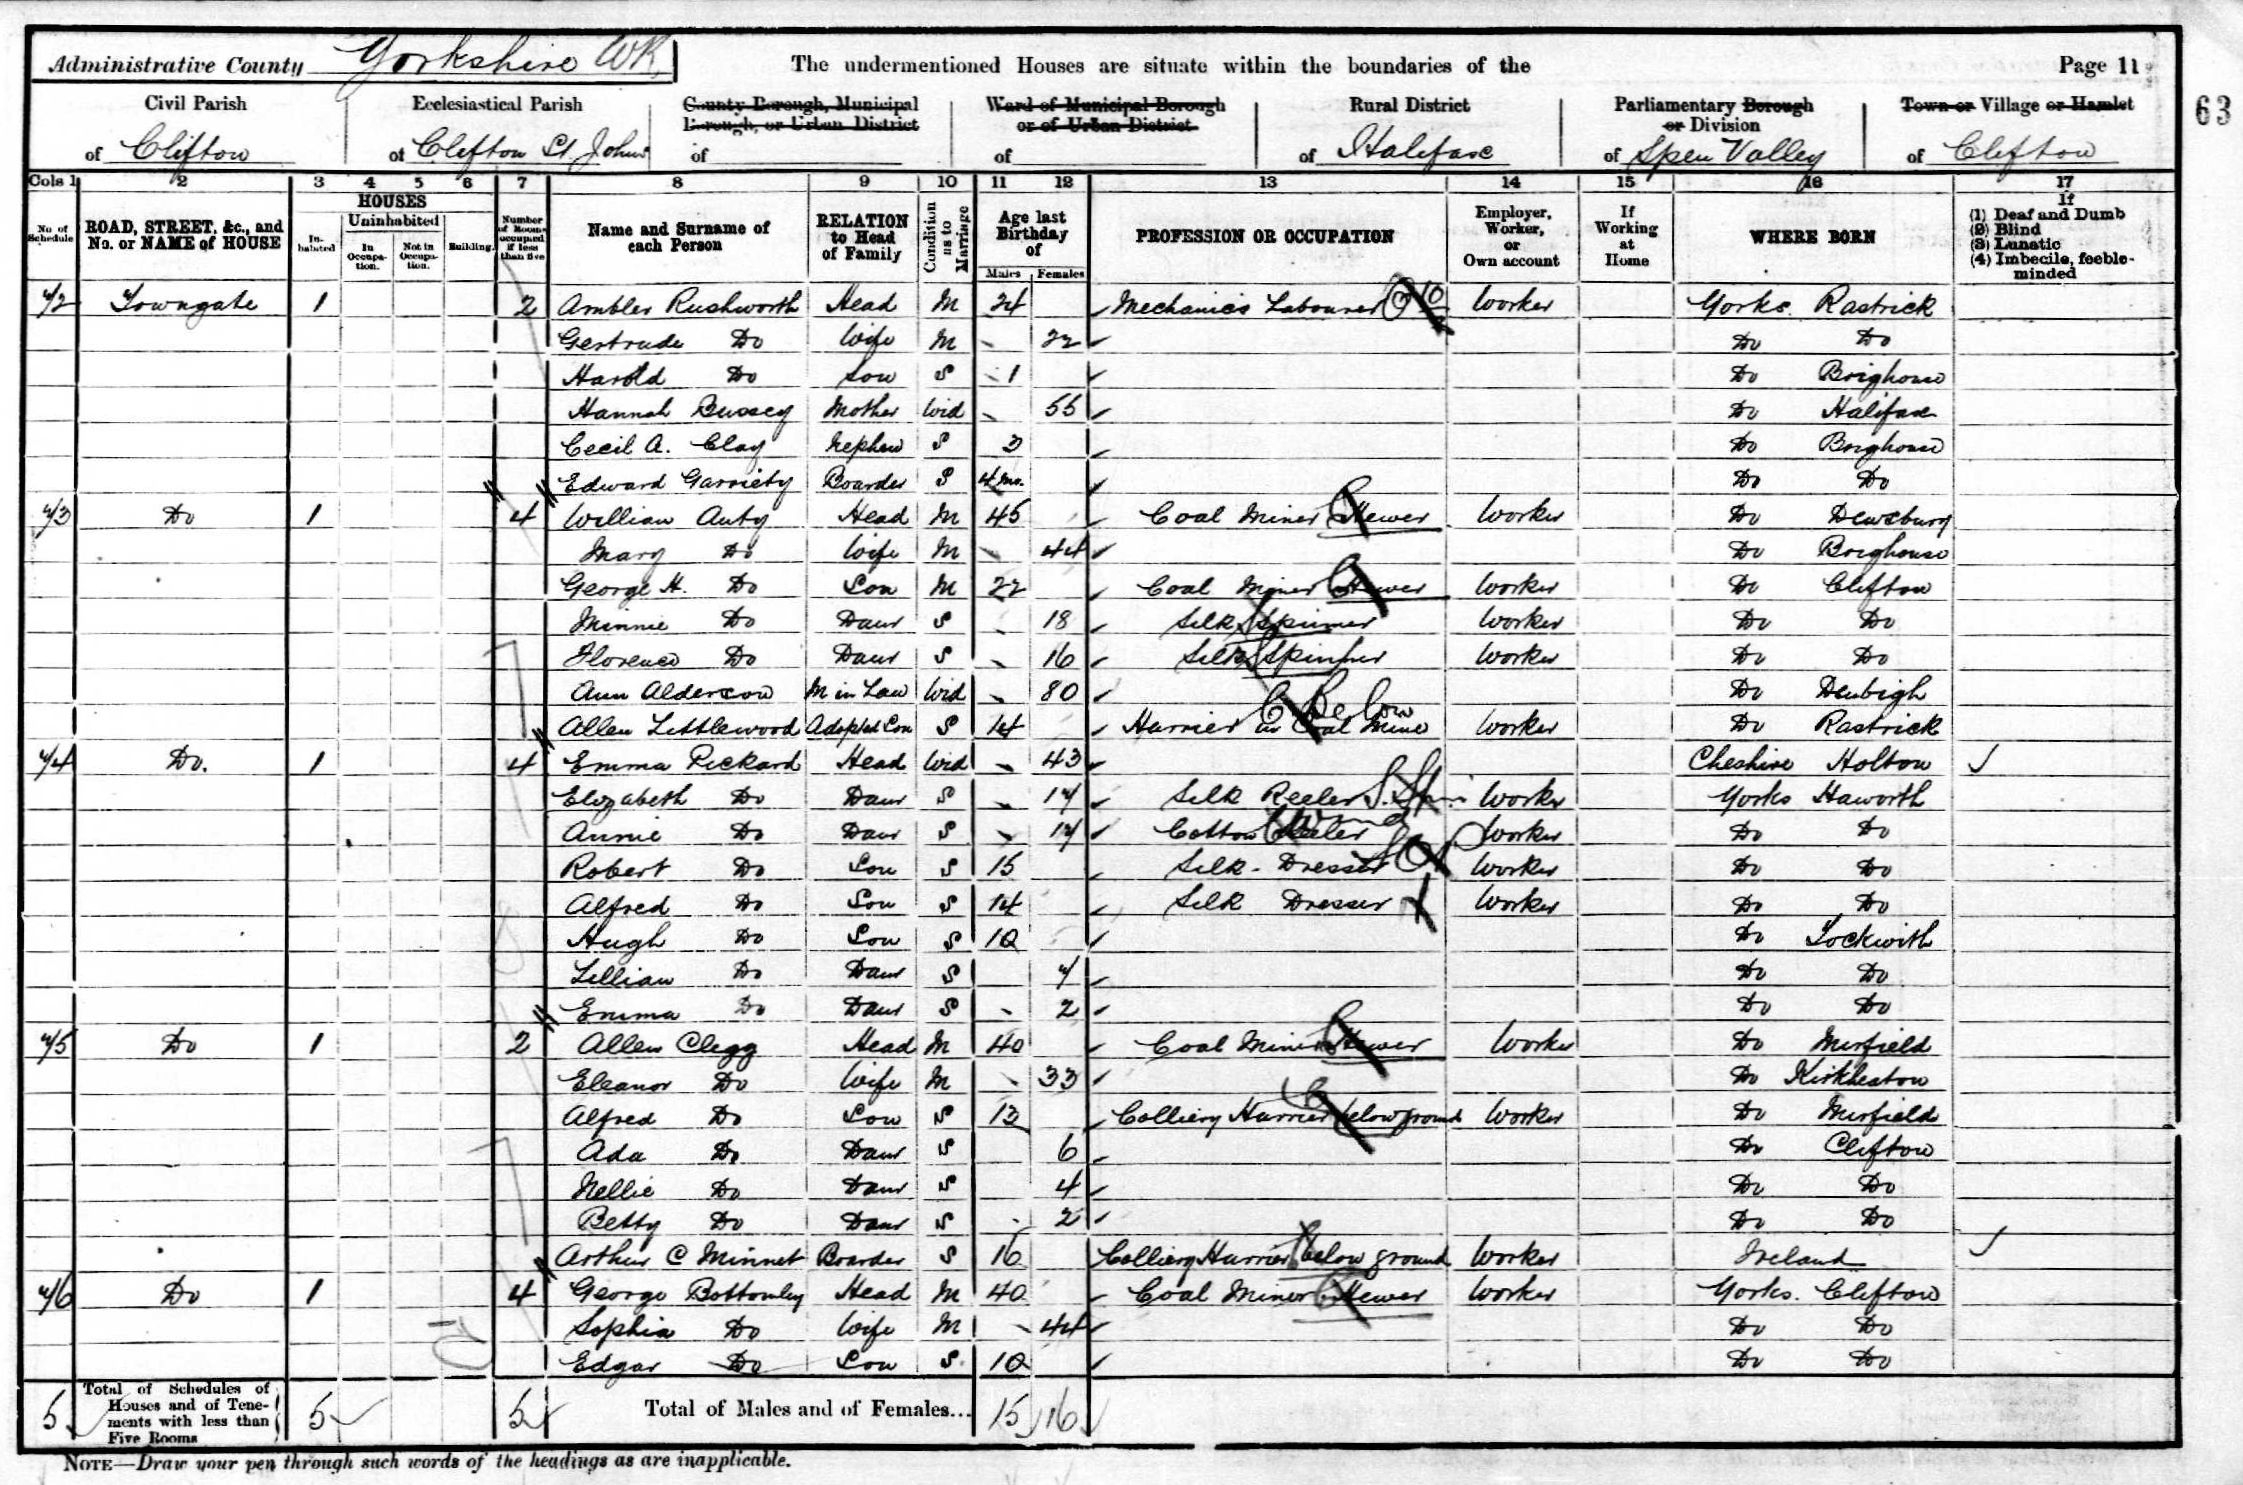 Administrative County Yorkshire WR. The undermentioned Houses are situate within the boundaries of the Page 11
Civil Parish Ecclesiastical Parish County Borough, Municipal Borough, or Urban District Ward of Municipal Borough or of Urban District Rural District Parliamentary Borough or Division Town or Village or Hamlet 63
of Clifton of Clifton St. Johns of of of Halifax of Spen Valley of Clifton
Cols 1 2 3 4 5 6 7 8 9 10 11 12 13 14 15 16 17
No of Schedule ROAD, STREET, &c., and No. or NAME of HOUSE HOUSES Inhabited Uninhabited In Occupation. Not in Occupation. Building. Number of Rooms occupied if less than five Name and Surname of each Person RELATION to Head of Family Condition as to Marriage Age last Birthday of Males Females PROFESSION OR OCCUPATION Employer, Worker, or Own account If Working at Home WHERE BORN If (1) Deaf and Dumb (2) Blind (3) Lunatic (4) Imbecile, feeble-minded
72 Towngate 1 2 Ambler Rushworth Head M 24 Mechanic's Labourer Worker Yorks. Rastrick
Gertrude Do Wife M 22 Do Do
Harold Do Son S 1 Do Brighouse
Hannah Bussey Mother Wid 55 Do Halifax
Cecil A. Clay Nephew S 3 Do Brighouse
Edward Garriety Boarder S 4 mo. Do Do
73 Do 1 4 William Auty Head M 45 Coal Miner Hewer Worker Do Dewsbury
Mary Do Wife M 44 Do Brighouse
George H. Do Son M 22 Coal Miner Hewer Worker Do Clifton
Minnie Do Daur S 18 Silk Spinner Worker Do Do
Florence Do Daur S 16 Silk Spinner Worker Do Do
Ann Alderson M in Law Wid 80 Do Denbigh
Allen Littlewood Adopted Son S 14 Hurrier in Coal Mine Below Worker Do Rastrick
74 Do. 1 4 Emma Pickard Head Wid 43 Cheshire Holton
Elizabeth Do Daur S 17 Silk Reeler Worker Yorks Haworth
Annie Do Daur S 17 Cotton Reeler Worker Do Do
Robert Do Son S 15 Silk - Dresser Worker Do Do
Alfred Do Son S 14 Silk Dresser Worker Do Do
Hugh Do Son S 10 Do Tockwith
Lillian Do Daur S 7 Do Do
Emma Do Daur S 2 Do Do
75 Do 1 2 Allen Clegg Head M 40 Coal Miner Hewer Worker Do Mirfield
Eleanor Do Wife M 33 Do Kirkheaton
Alfred Do Son S 13 Colliery Hurrier below ground Worker Do Mirfield
Ada Do Daur S 6 Do Clifton
Nellie Do Daur S 4 Do Do
Betty Do Daur S 2 Do Do
Arthur C Minnet Boarder S 16 Colliery Hurrier below ground Worker Ireland
76 Do 1 4 George Bottomley Head M 40 Coal Miner Hewer Worker Yorks. Clifton
Sophia Do Wife M 44 Do Do
Edgar Do Son S 10 Do Do
5 Total of Schedules of Houses and of Tenements with less than Five Rooms 5 5 Total of Males and of Females... 15 16
NOTE—Draw your pen through such words of the headings as are inapplicable.